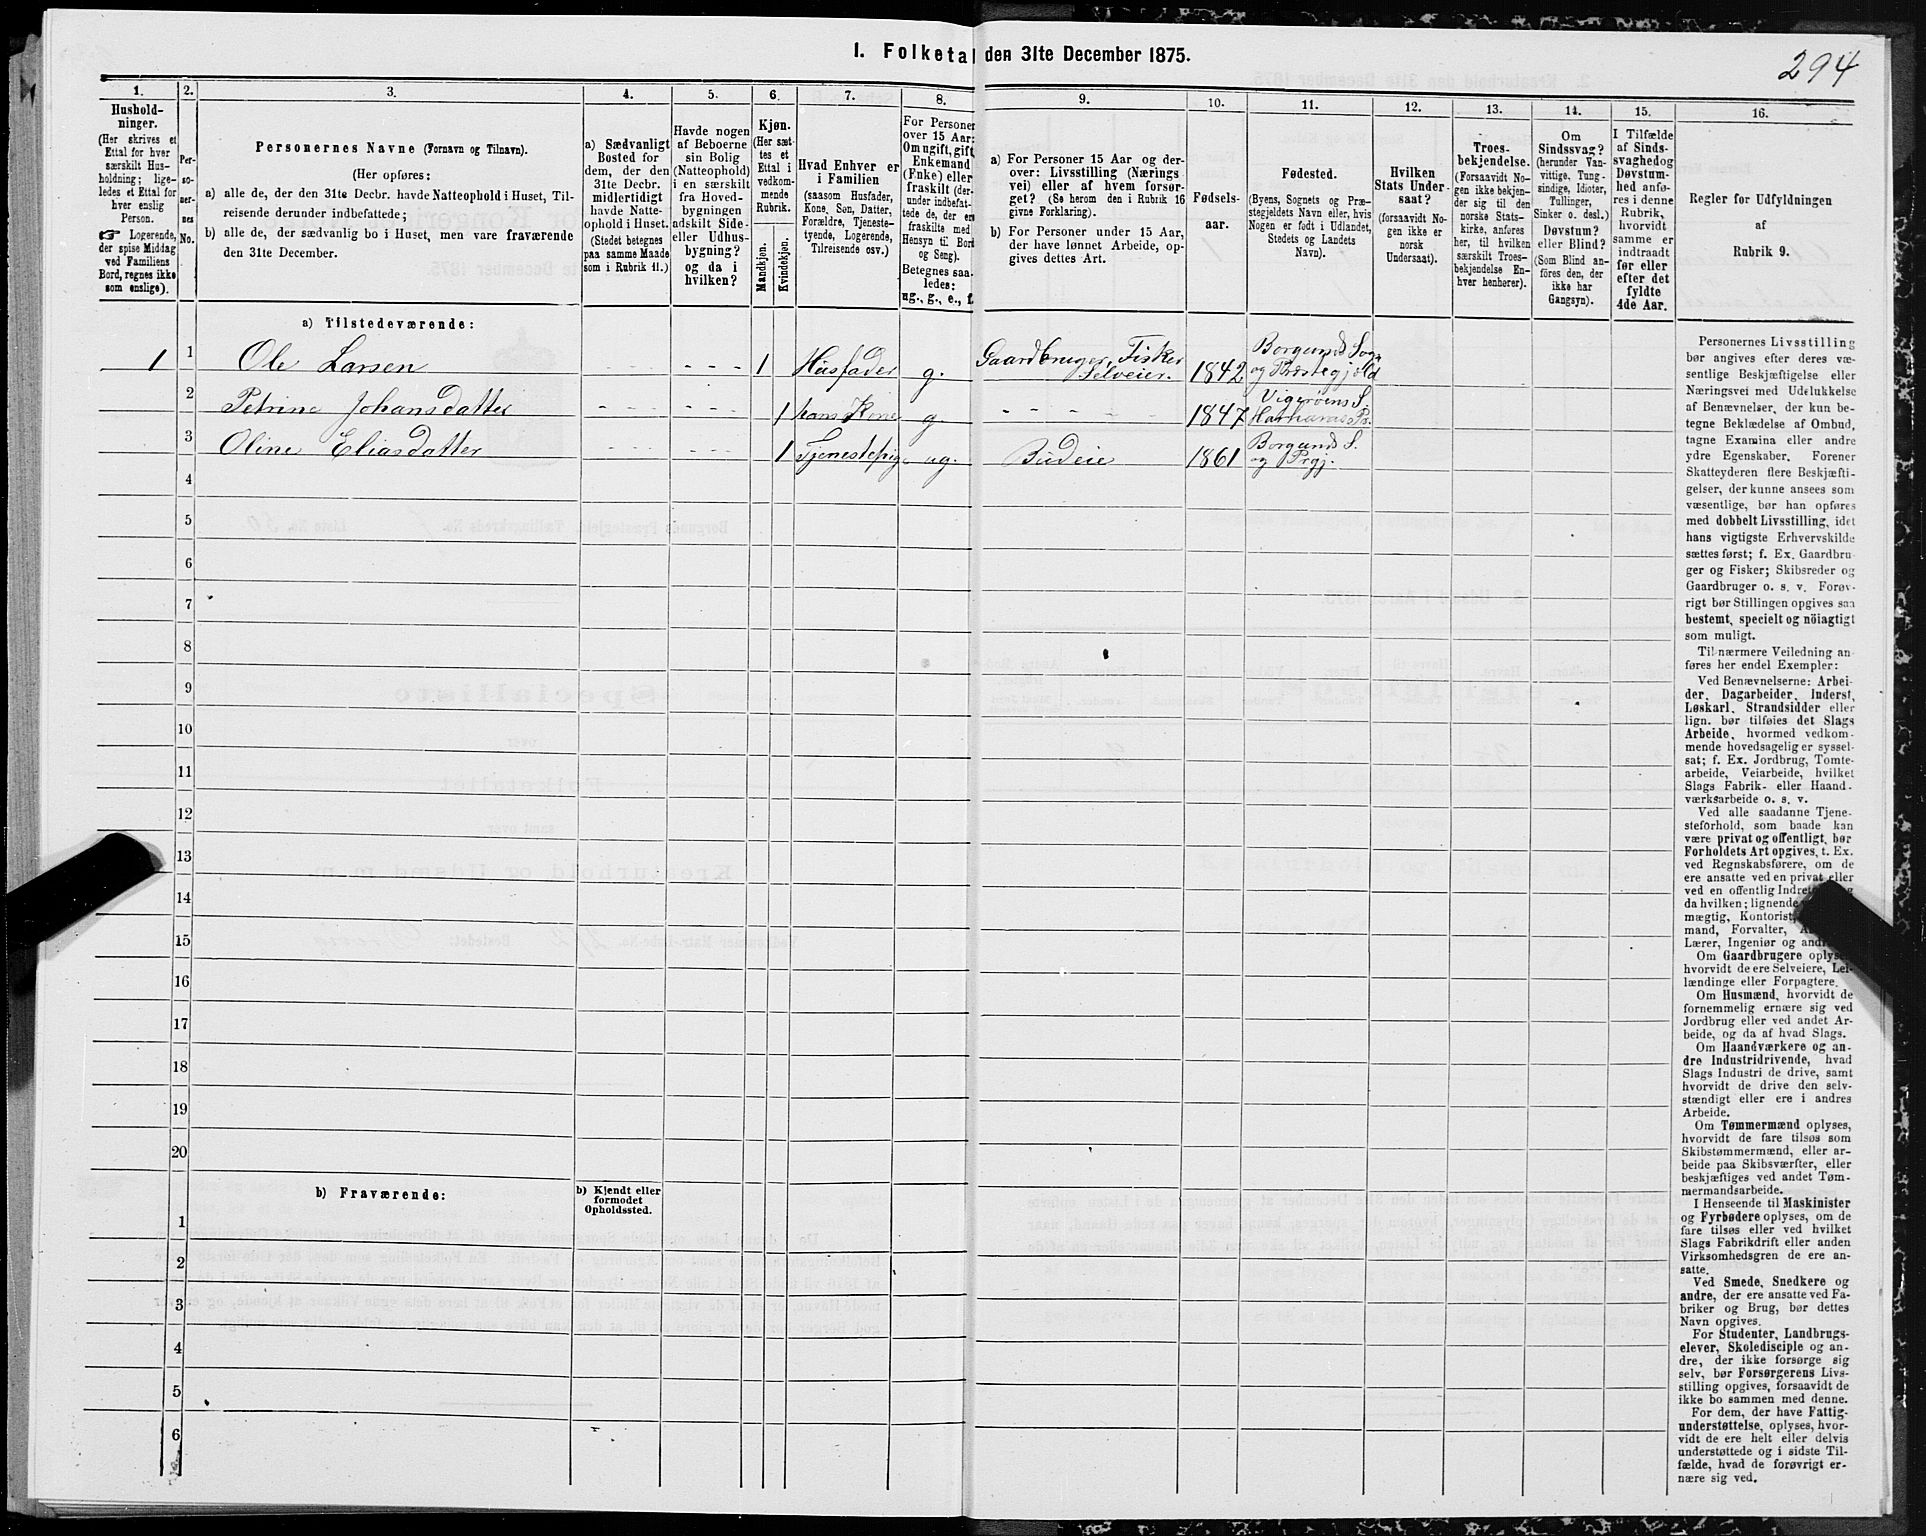 I. Folketal den 31te December 1875.
294
1.
Hushold-
ninger.
(Her skrives et
Ettal for hver
særskilt Hus-
holdning; lige-
ledes et Ettal for
hver enslig
Person.
☞ Logerende,
der spise Middag
ved Familiens
Bord, regnes ikke
som enslige).
2.
Per-
so-
ner-
nes
No.
3.
Personernes Navne (Fornavn og Tilnavn).
(Her opføres:
a) alle de, der den 31te Decbr. havde Natteophold i Huset, Til-
reisende derunder indbefattede;
b) alle de, der sædvanlig bo i Huset, men vare fraværende
den 31te December.
4.
a) Sædvanligt
Bosted for
dem, der den
31te Decbr.
midlertidigt
havde Natte-
ophold i Huset.
(Stedet betegnes
paa samme Maade
som i Rubrik 11.)
5.
Havde nogen
af Beboerne
sin Bolig
(Natteophold)
i en særskilt
fra Hoved-
bygningen
adskilt Side-
eller Udhus-
bygning?
og da i
hvilken?
6.
Kjøn.
(Her sæt-
tes et
Ettal i
vedkom-
mende
Rubrik.
Mandkjøn.
Kvindekjøn.
7.
Hvad Enhver er
i Familien
(saasom Husfader,
Kone, Søn, Datter,
Forældre, Tjeneste-
tyende, Logerende,
Tilreisende osv.)
8.
For Personer
over 15 Aar:
Om ugift, gift,
Enkemand
(Enke) eller
fraskilt (der-
under indbefat-
tede de, der ere
fraskilte med
Hensyn til Bord
og Seng).
Betegnes saa-
ledes:
ug., g., e., f.
9.
a) For Personer 15 Aar og der-
over: Livsstilling (Nærings
vei) eller af hvem forsør-
get? (Se herom den i Rubrik 16
givne Forklaring).
b) For Personer under 15 Aar,
der have lønnet Arbeide, op-
gives dettes Art.
10.
Fødsels-
aar.
11.
Fødested.
(Byens, Sognets og Præ-
stegjeldets Navn eller, hvis
Nogen er født i Udlandet,
Stedets og Landets
Navn).
12.
Hvilken
Stats Under-
saat?
(forsaavidt No-
gen ikke er
norsk
Undersaat).
13.
Troes-
bekjendelse.
(Forsaavidt No-
gen ikke bekjen-
der sig til den
norske Stats-
kirke, anføres
her, til hvilken
særskilt Troes-
bekjendelse En-
hver henhører).
14.
Om
Sindssvag?
(herunder Van-
vittige, Tung-
sindige, Idioter,
Tullinger,
Sinker o. desl.)
Døvstum?
eller Blind?
(Som Blind an-
føres den, der
ikke har
Gangsyn).
15.
I Tilfælde
af Sinds-
svaghed og
Døvstum-
hed anfø-
res i denne
Rubrik,
hvorvidt
samme er
indtraadt
før eller
efter det
fyldte
4de Aar.
16.
Regler for Udfyldningen
af
Rubrik 9.
a) Tilstedeværende:
1 1 Ole Larsen - - - - - - - 1 Husfader g. Gaardbruger, Fisker Selveier. 1842 Borgunds Sogn og Præstegjeld
2 Petrine Johansdatter - - - - - - - 1 hans Kone g - - - - - 1847 Vigerøens S. Harhams Pr.
3 Oline Eliasdatter - - - - - - - 1 Tjenestepige ug. Budeie 1861 Borgunds S. og Prgj.
4
5
6
7
8
9
10
11
12
13
14
15
16
17
18
19
20
b) Fraværende:
b) Kjendt eller
formodet
Opholdssted.
1
2
3
4
5
6
Personernes Livsstilling
bør angives efter deres væ-
sentlige Beskjæftigelse eller
Næringsvei med Udelukkelse
af Benævnelser, der kun be-
tegne Beklædelse af Ombud,
tagne Examina eller andre
ydre Egenskaber. Forener
Skatteyderen flere Beskjæfti-
gelser, der kunne ansees som
væsentlige, bør han opføres
med dobbelt Livsstilling, idet
hans vigtigste Erhvervskilde
sættes først; f. Ex. Gaardbru-
ger og Fisker; Skibsreder og
Gaardbruger o. s. v. Forøv-
rigt bør Stillingen opgives saa
bestemt, specielt og nöiagtigt
som muligt.
Til nærmere Veiledning an-
føres her endel Exempler:
Ved Benævnelserne: Arbei-
der, Dagarbeider, Inderst,
Løskarl, Strandsidder eller
lign. bør tilføies det Slags
Arbeide, hvormed vedkom-
mende hovedsagelig er syssel-
sat; f. Ex. Jordbrug, Tomte-
arbeide, Veiarbeide, hvilket
Slags Fabrik- eller Haand-
værksarbeide o. s. v.
Ved alle saadanne Tjene-
steforhold, som baade kan
være privat og offentligt, bør
Forholdets Art opgives, t. Ex.
ved Regnskabsførere, om de
ere ansatte ved en privat eller
ved en offentlig
da hvilken; lignende
mægtig, Kontorist,
mand, Forvalter,
Lærer, Ingeniør og
Om Gaardbrugere oplyses,
hvorvidt de ere Selveiere, Lei-
lændinge eller Forpagtere.
Om Husmænd, hvorvidt de
fornemmelig ernære sig ved
Jordbrug eller ved andet Ar-
beide, og da af hvad Slags.
Om Haandværkere og an-
dre Industridrivende, hvad
Slags Industri de drive, samt
hvorvidt de drive den selv-
stændigt eller ere i andres
Arbeide.
Om Tømmermænd oplyses,
hvorvidt de fare tilsøs som
Skibstømmermænd, eller ar-
beide paa Skibsværfter, eller
beskjæftiges ved andet Töm-
mermandsarbeide.
I Henseende til Maskinister
og Fyrbødere oplyses, om de
fare tilsøs eller ved hvilket
Slags Fabrikdrift eller anden
Virksomhedsgren de ere an-
satte.
Ved Smede, Snedkere og
andre, der ere ansatte ved Fa-
briker og Brug, bør dettes
Navn opgives.
For Studenter, Landbrugs-
elever, Skoledisciple og an-
dre, der ikke forsørge sig
selv, bør Forsørgerens Livs-
stilling opgives, forsaavidt de
ikke bo sammen med denne.
For dem, der have Fattig-
understøttelse, oplyses, hvor-
vidt de ere helt eller delvis
understøttede og i sidste Til-
fælde, hvad de forøvrigt er-
nære sig ved.